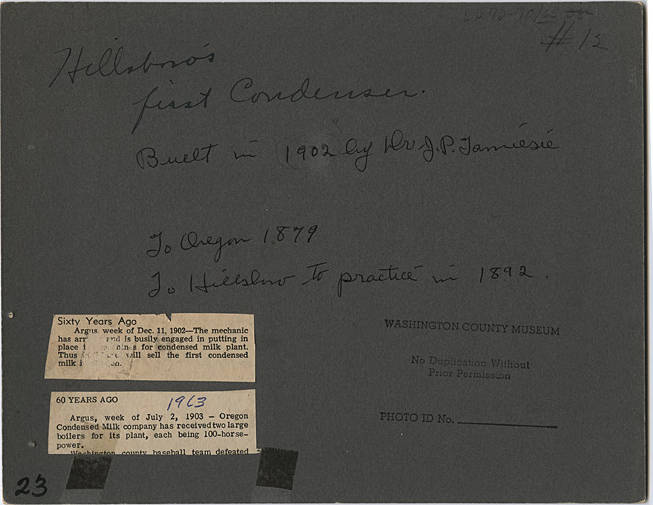 # 12
Hillsboro's
first Condenser.
Built in 1902 by Dr J.P. Tamiesie
To Oregon 1879
To Hillsboro to practice in 1892.
Sixty Years Ago
Argus, week of Dec. 11, 1902—The mechanic
has and is busily engaged in putting in
place for condensed milk plant.
Thus will sell the first condensed
milk
60 YEARS AGO 1963
Argus, week of July 2, 1903 — Oregon
Condensed Milk company has received two large
boilers for its plant, each being 100-horse-
power.
Washington county baseball team defeated
WASHINGTON COUNTY MUSEUM
No Duplication Without
Prior Permission
PHOTO ID No.
23